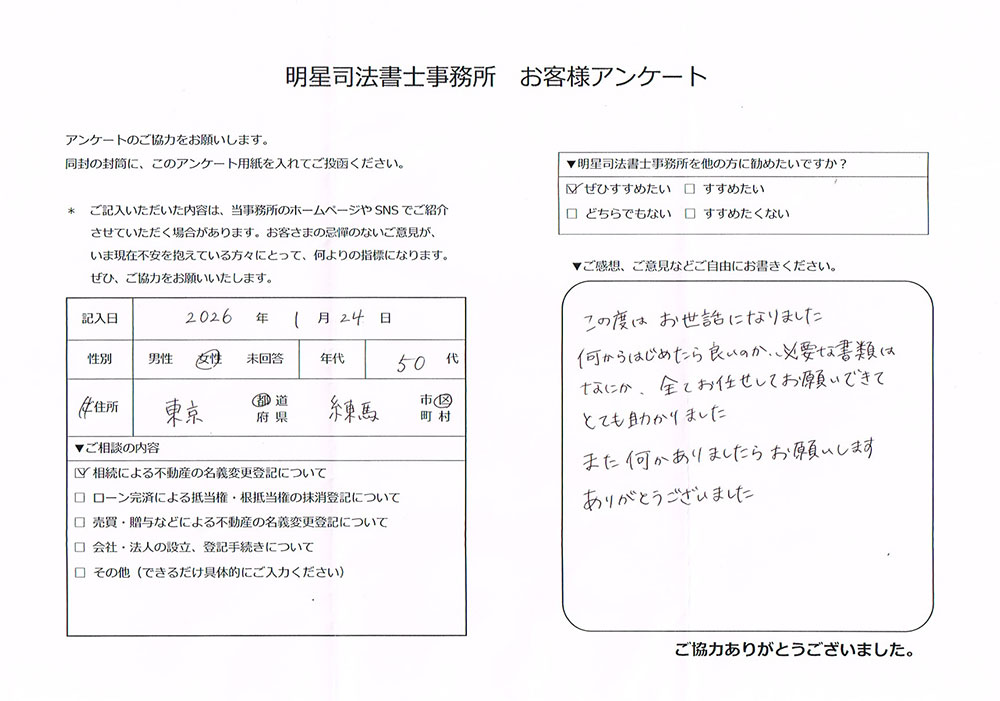 明星司法書士事務所　お客様アンケート
アンケートのご協力をお願いします。
同封の封筒に、このアンケート用紙を入れてご投函ください。
＊　ご記入いただいた内容は、当事務所のホームページや SNS でご紹介
させていただく場合があります。お客さまの忌憚のないご意見が、
いま現在不安を抱えている方々にとって、何よりの指標になります。
ぜひ、ご協力をお願いいたします。
記入日　2026 年 1 月 24 日
性別　男性　女性　未回答　年代　50 代
住所　東京　都 道 府 県　練馬　市 区 町 村
▼ご相談の内容
☑ 相続による不動産の名義変更登記について
□ ローン完済による抵当権・根抵当権の抹消登記について
□ 売買・贈与などによる不動産の名義変更登記について
□ 会社・法人の設立、登記手続きについて
□ その他（できるだけ具体的にご入力ください）
▼明星司法書士事務所を他の方に勧めたいですか？
☑ ぜひすすめたい　□ すすめたい
□ どちらでもない　□ すすめたくない
▼ご感想、ご意見などご自由にお書きください。
この度は お世話になりました
何からはじめたら良いのか、必要な書類は
なにか、全てお任せしてお願いできて
とても助かりました
また何かありましたらお願いします
ありがとうございました
ご協力ありがとうございました。